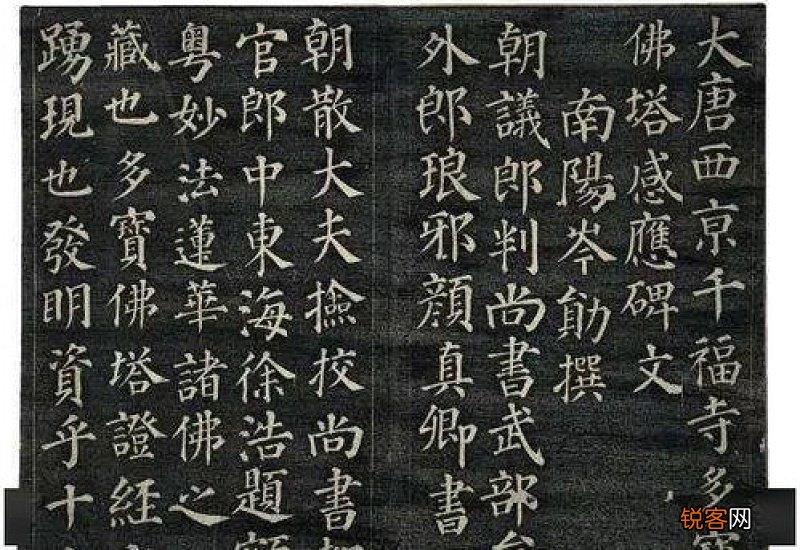 大唐西京千福寺多寶
佛塔感應碑文
南陽岑勛撰
朝議郎判尚書武部
外郎琅邪顏真卿書
朝散大夫撿挍尚書
官郎中東海徐浩題額
粵妙法蓮華諸佛之
藏也多寶佛塔證經
踴現也發明資乎十
锐客网